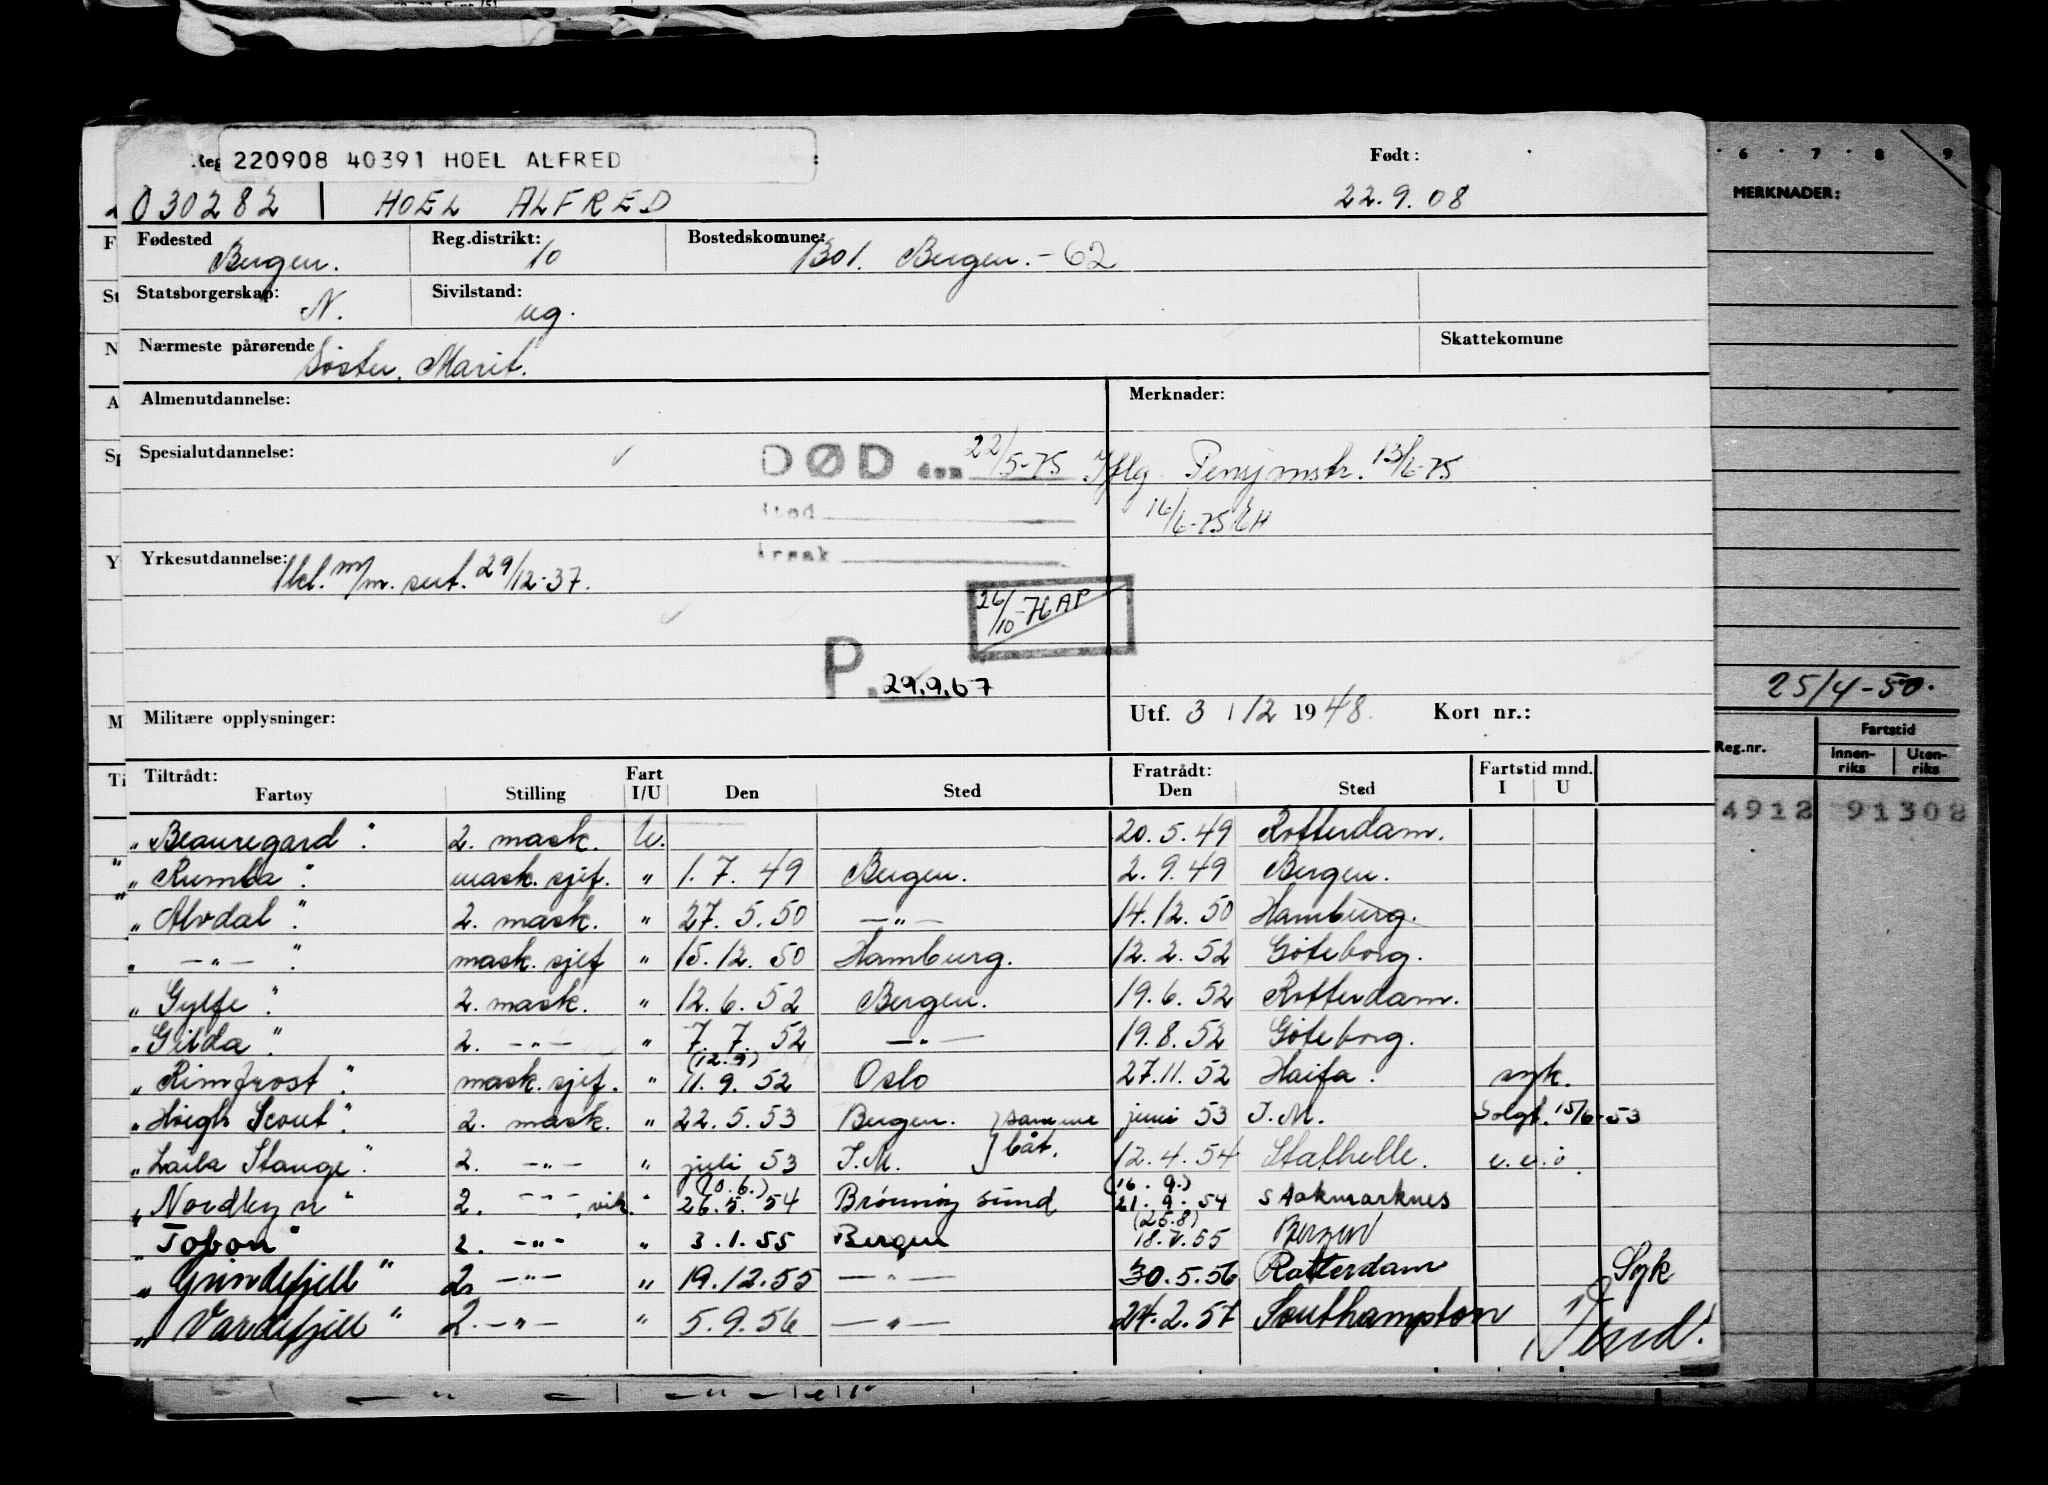 Reg 220908 40391 HOEL ALFRED : Født:
030282 HOEL ALFRED 22.9.08
Fødested Bergen. Reg.distrikt: 10 Bostedskomune: 1301. Bergen.- 62
Statsborgerskap: N. Sivilstand: ug.
Nærmeste pårørende Søster, Marit. Skattekomune
Almenutdannelse: Merknader:
Spesialutdannelse: DØD den 22/5-75 Iflg. 13/6-75
16/6-75 EH
Yrkesutdannelse: 1 kl. m/m. sert. 29/12-37.
26/10-76 AP
P. 29.9.67
Militære opplysninger: Utf. 3 / 12 1948. Kort nr.:
Tiltrådt: Fart Fratrådt: Fartstid mnd.
Fartøy Stilling I/U Den Sted Den Sted I U
„Beauregard". 2. mask. U. 20.5.49 Rotterdam.
„Rumba". mask. sjef. " 1.7.49 Bergen. 2.9.49 Bergen.
„Alvdal". 2. mask. " 27.5.50 —"— 14.12.50 Hamburg.
„ —"— ". mask. sjef " 15.12.50 Hamburg. 12.2.52 Göteborg.
„Gylfe". 2. mask. " 12.6.52 Bergen. 19.6.52 Rotterdam.
„Gilda". 2. —"— " 7.7.52 —"— 19.8.52 Göteborg.
(12.9)
„Rimfrost". mask. sjef. " 11.9.52 Oslo 27.11.52 Haifa. syk.
„High Scout". 2. mask. " 22.5.53 Bergen. } samme juni 53 I.M. Solgt. 15/6-53
„Laila Stange". 2. —"— " juli 53 I.M. } båt. 12.4.54 Stathelle.
(10.6.) (16.9.)
„Nordkyn" 2. —"—, vik. " 26.5.54 Brönnöysund 21.9.54 Stokmarknes
(25.8)
„Tobon" 2. —"— " 3.1.55 Bergen Bergen
„Grindefjell" 2. —"— " 19.12.55 —"— 30.5.56 Rotterdam Syk
„Vardefjell" 2. —"— " 5.9.56 —"— 24.2.57 Southampton Vend!
6 7 8 9
MERKNADER:
25/4-50.
Reg.nr. Fartstid
Innen-riks Uten-riks
4912 91308